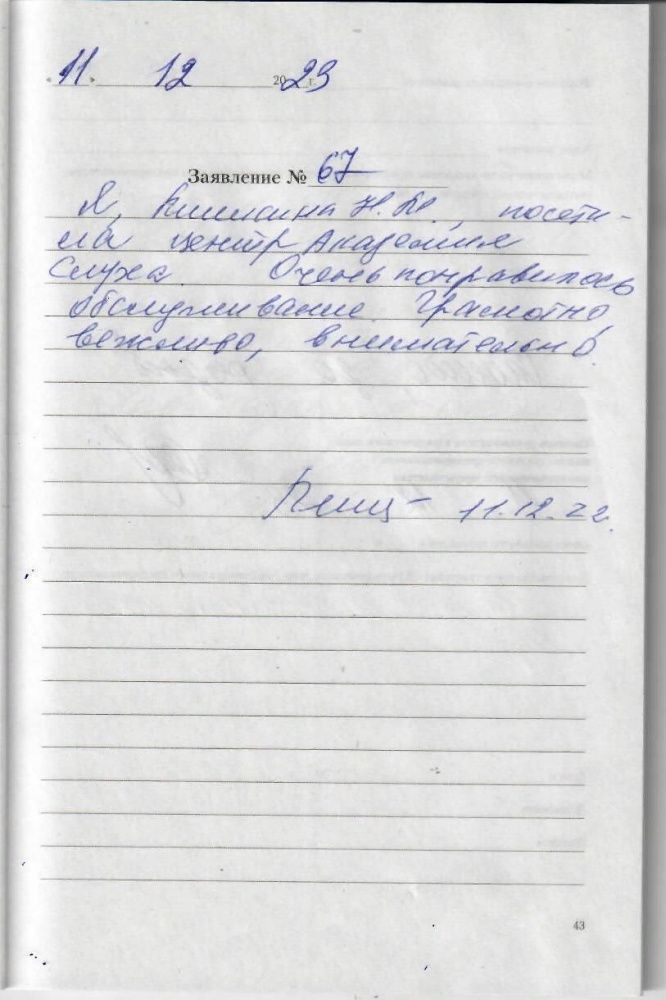 «11» 12 2023 г.
Заявление № 67
Я, Н.К., посети-
ла центр Академия
Слуха. Очень понравилось
обслуживание. Грамотно,
вежливо, внимательно.
11.12.22.
43